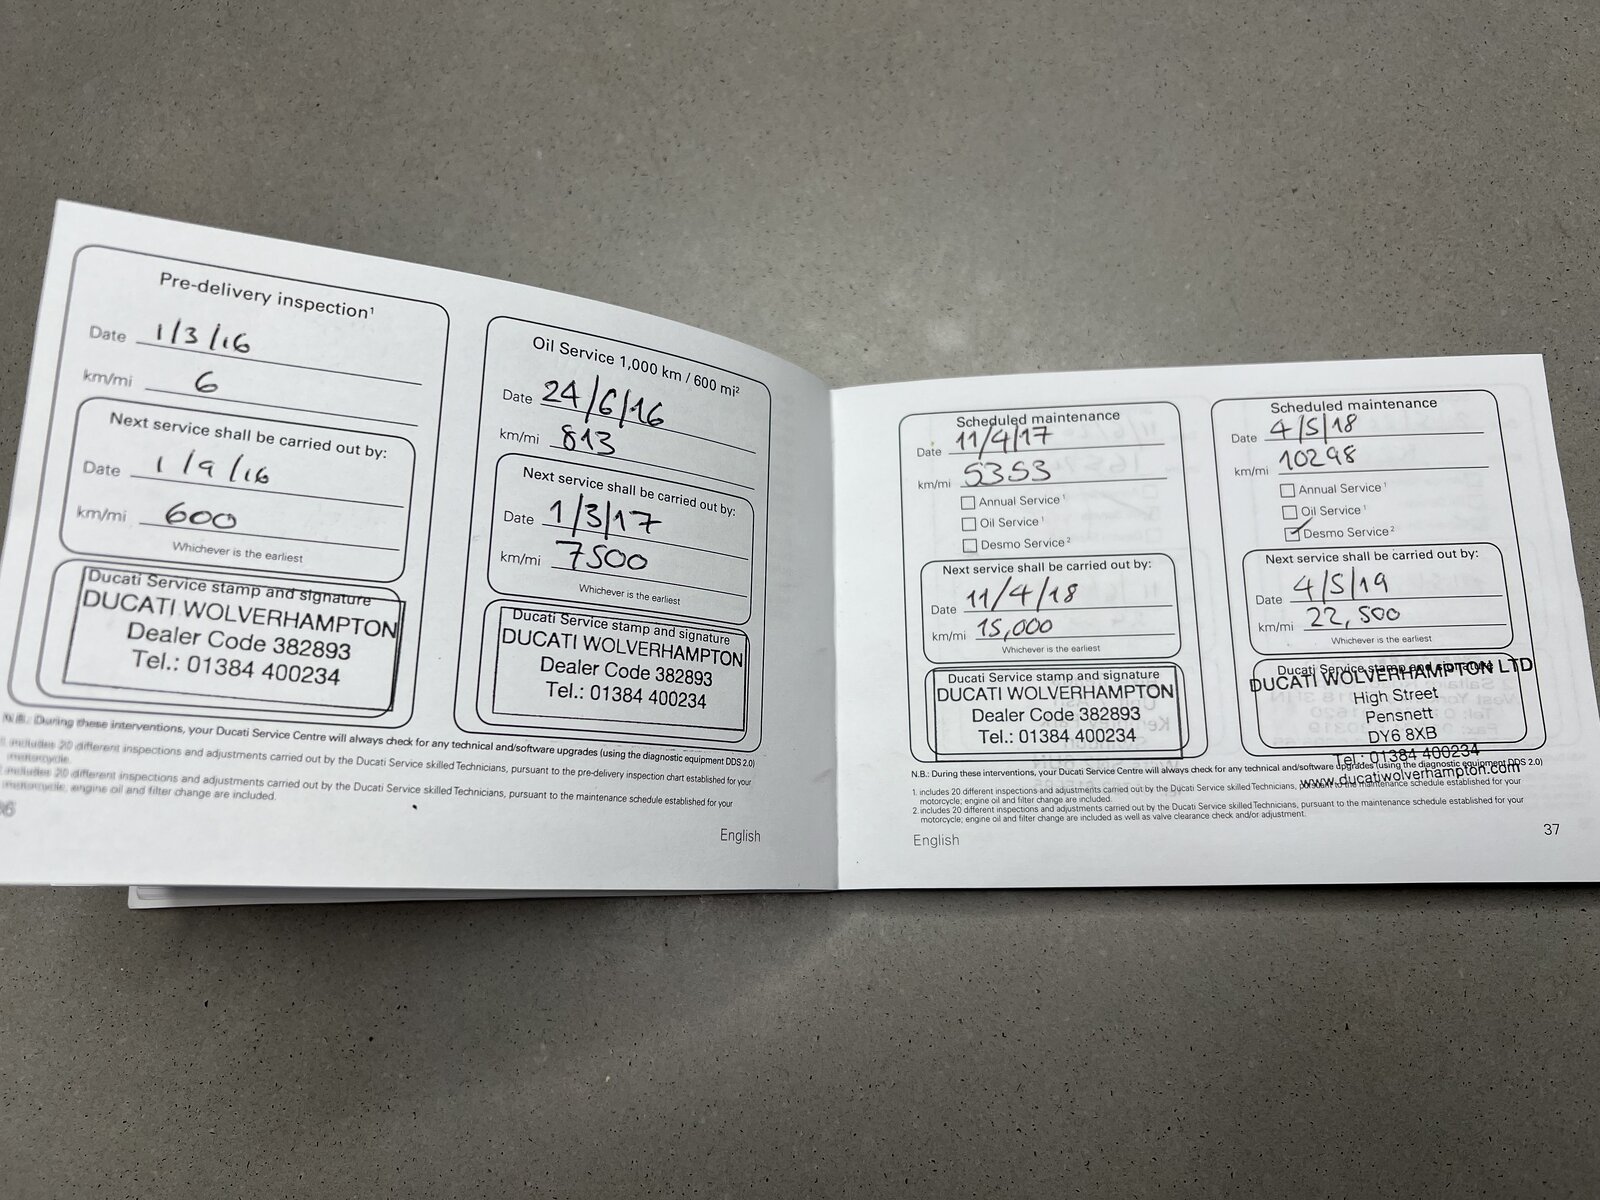 Pre-delivery inspection¹
Date 1/3/16
km/mi 6
Next service shall be carried out by:
Date 1/9/16
km/mi 600
Whichever is the earliest
Ducati Service stamp and signature
DUCATI WOLVERHAMPTON
Dealer Code 382893
Tel.: 01384 400234
Oil Service 1,000 km / 600 mi²
Date 24/6/16
km/mi 813
Next service shall be carried out by:
Date 1/3/17
km/mi 7500
Whichever is the earliest
Ducati Service stamp and signature
DUCATI WOLVERHAMPTON
Dealer Code 382893
Tel.: 01384 400234
N.B.: During these interventions, your Ducati Service Centre will always check for any technical and/software upgrades (using the diagnostic equipment DDS 2.0)
1. includes 20 different inspections and adjustments carried out by the Ducati Service skilled Technicians, pursuant to the pre-delivery inspection chart established for your
motorcycle.
2. includes 20 different inspections and adjustments carried out by the Ducati Service skilled Technicians, pursuant to the maintenance schedule established for your
motorcycle; engine oil and filter change are included.
36
English
Scheduled maintenance
Date 11/4/17
km/mi 5353
Annual Service¹
Oil Service¹
Desmo Service²
Next service shall be carried out by:
Date 11/4/18
km/mi 15,000
Whichever is the earliest
Ducati Service stamp and signature
DUCATI WOLVERHAMPTON
Dealer Code 382893
Tel.: 01384 400234
Scheduled maintenance
Date 4/5/18
km/mi 10298
Annual Service¹
Oil Service¹
Desmo Service²
Next service shall be carried out by:
Date 4/5/19
km/mi 22,500
Whichever is the earliest
Ducati Service stamp and signature
DUCATI WOLVERHAMPTON LTD
High Street
Pensnett
DY6 8XB
Tel: 01384 400234
www.ducatiwolverhampton.com
N.B.: During these interventions, your Ducati Service Centre will always check for any technical and/software upgrades (using the diagnostic equipment DDS 2.0)
1. includes 20 different inspections and adjustments carried out by the Ducati Service skilled Technicians, pursuant to the maintenance schedule established for your
motorcycle; engine oil and filter change are included.
2. includes 20 different inspections and adjustments carried out by the Ducati Service skilled Technicians, pursuant to the maintenance schedule established for your
motorcycle; engine oil and filter change are included as well as valve clearance check and/or adjustment.
English
37